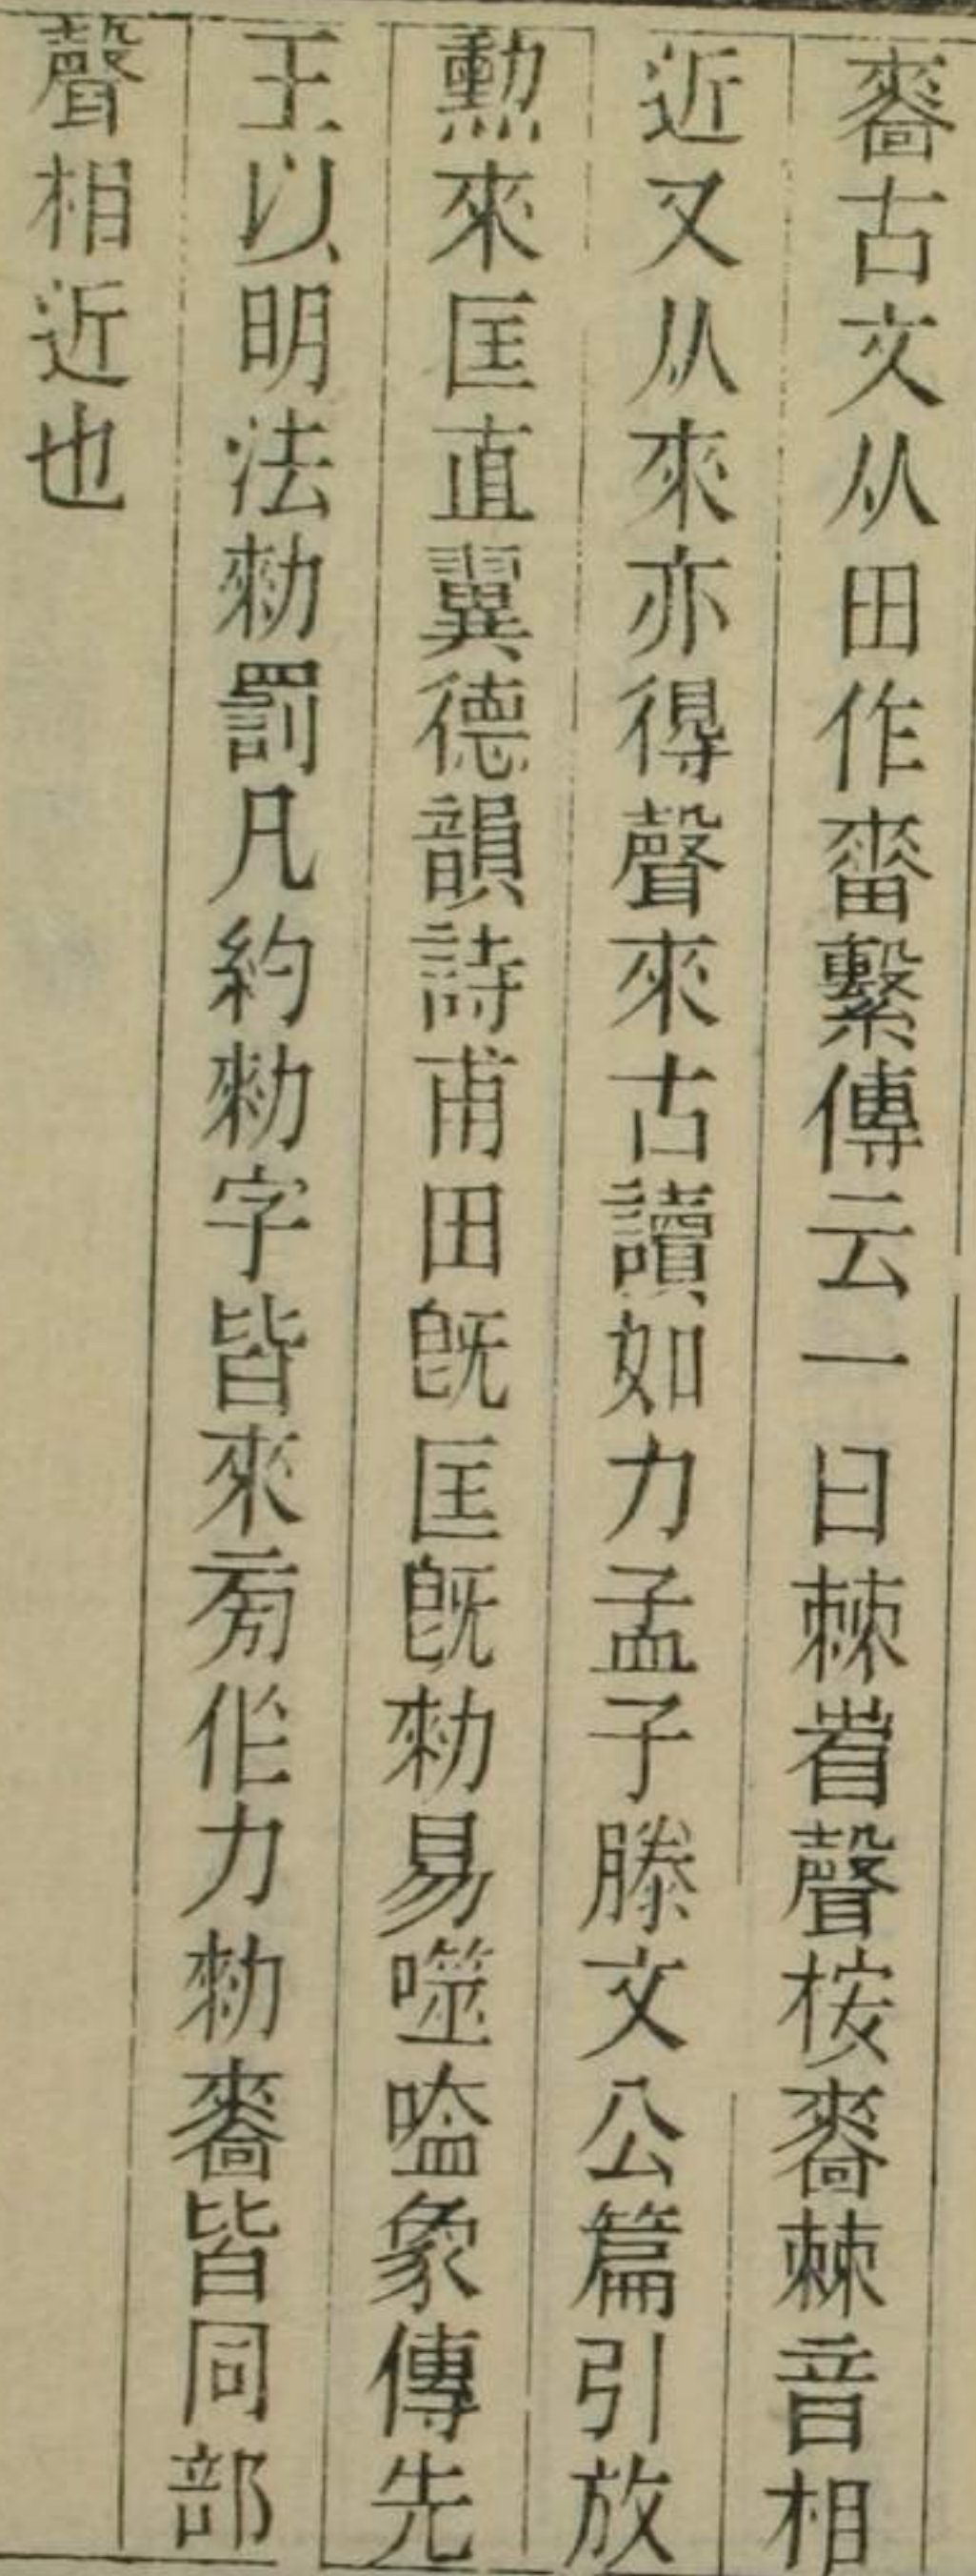 嗇古文从田作𤲸繫傳云一曰棘省聲桉嗇棘音相
近又从來亦得聲來古讀如力孟子滕文公篇引放
勳來匡直翼德韻詩甫田旣匡旣勑易噬嗑象傳先
王以明法勑罰凡約勑字皆來㫄作力勑嗇皆同部
聲相近也